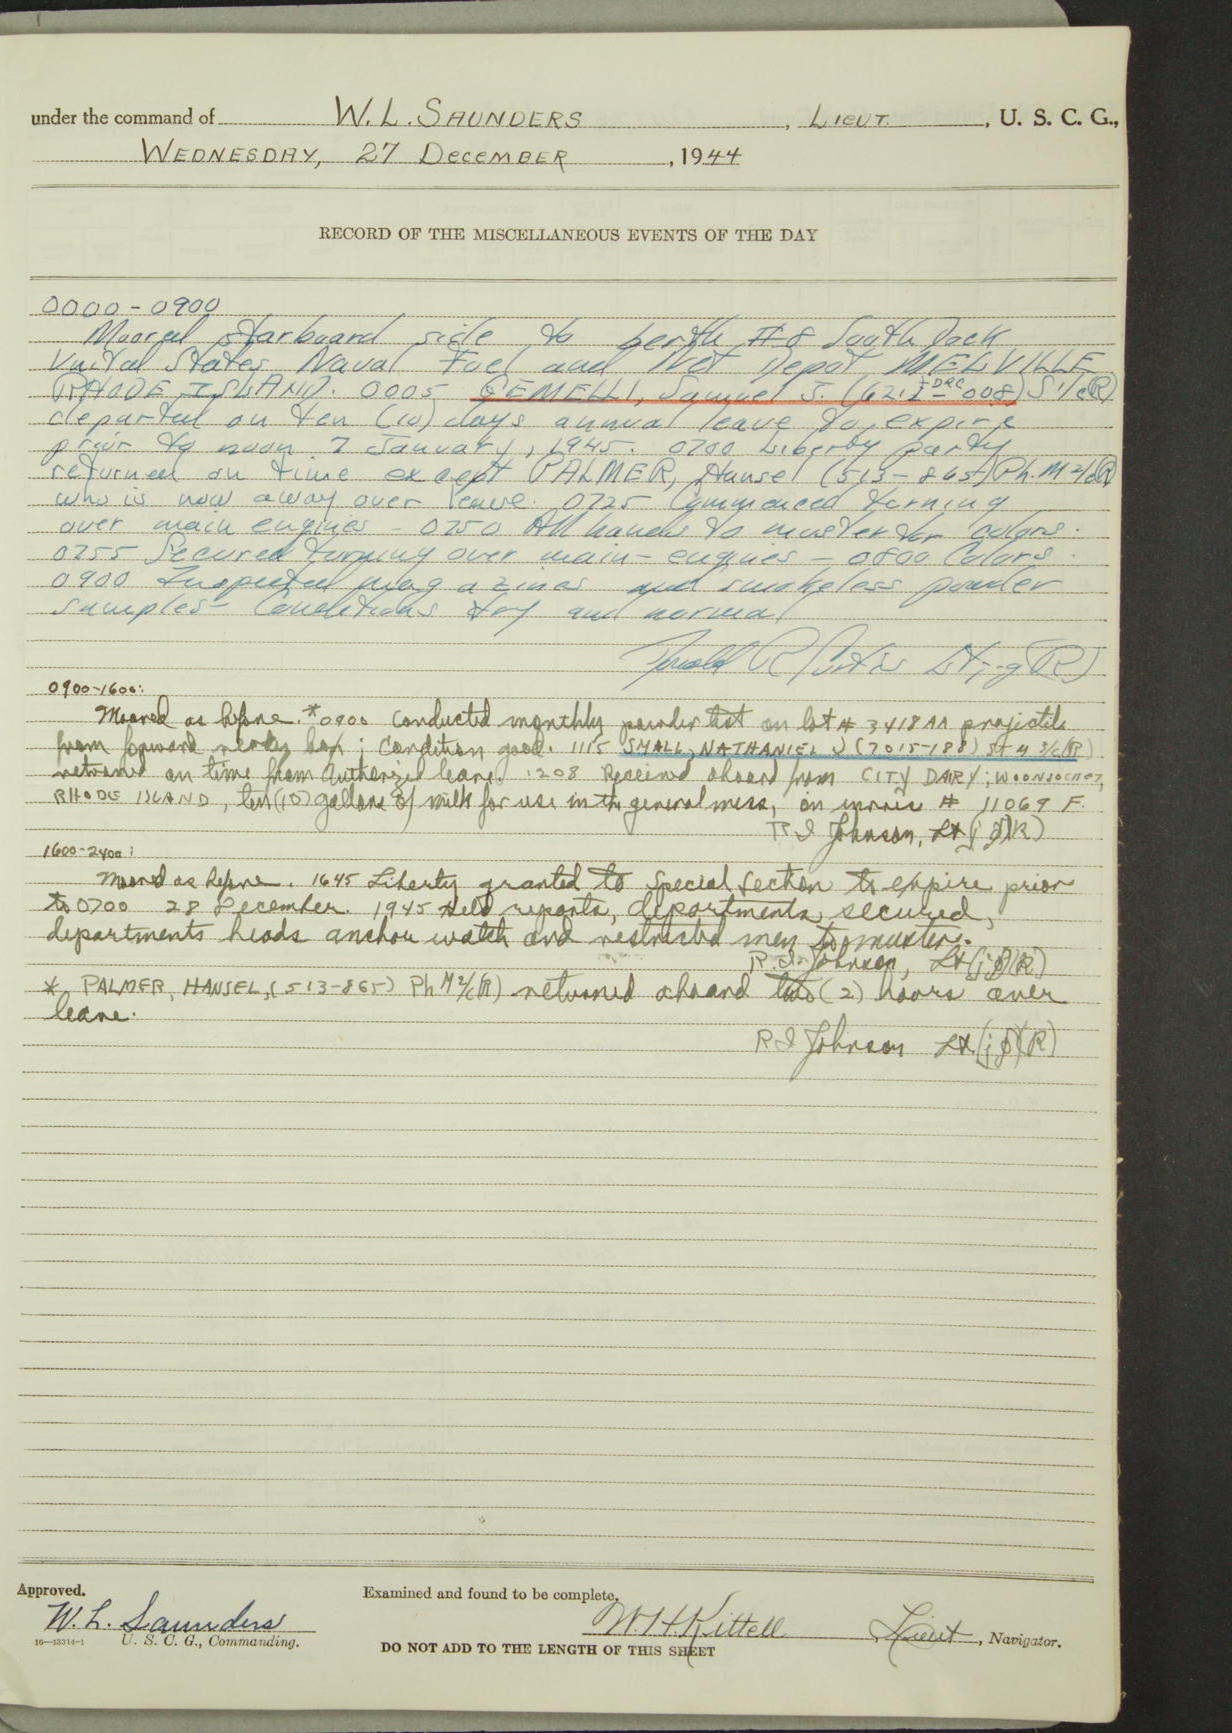 under the command of W.L. SAUNDERS, LIEUT., U. S. C. G.,
WEDNESDAY, 27 DECEMBER, 1944
RECORD OF THE MISCELLANEOUS EVENTS OF THE DAY
0000-0900
Moored starboard side to berth #8 South Dock
United States Naval Fuel and Net Depot MELVILLE
RHODE ISLAND. 0005 GEMELLI, Samuel J. S1/c(R)
departed on ten (10) days annual leave to expire
prior to noon 7 January, 1945. 0700 Liberty party
returned on time except PALMER, Hansel (513-865) Ph.M2/c(R)
who is now away over leave. 0725 Commenced turning
over main engines - 0750 All hands to muster for colors.
0755 Secured turning over main engines - 0800 Colors.
0900 Inspected magazines and smokeless powder
samples - Conditions dry and normal
0900-1600:
Moored as before. *0900 Conducted monthly powder test on lot # 3418AA projectile
from forward ready box; Condition good. 1115 SMALL, NATHANIEL J (7015-188) St M 3/c(R)
returned on time from authorized leave. 1208 Received aboard from CITY DAIRY; WOONSOCKET,
RHODE ISLAND, ten (10) gallons of milk for use in the general mess, on invoice # 11069 F.
R I Johnson, Lt(jg)(R)
1600-2400:
Moored as before. 1645 Liberty granted to Special Section to expire prior
to 0700 28 December. 1945 Held reports, departments secured,
departments heads anchor watch and restricted men to muster.
R.I. Johnson, Lt(jg)(R)
* PALMER, HANSEL, (513-865) PhM2/c(R) returned aboard two (2) hours over
leave.
R I Johnson Lt.(jg)(R)
Approved.
Examined and found to be complete.
W. L. Saunders
W H Kittell Lieut, Navigator.
16—13314-1 U. S. C. G., Commanding.
DO NOT ADD TO THE LENGTH OF THIS SHEET